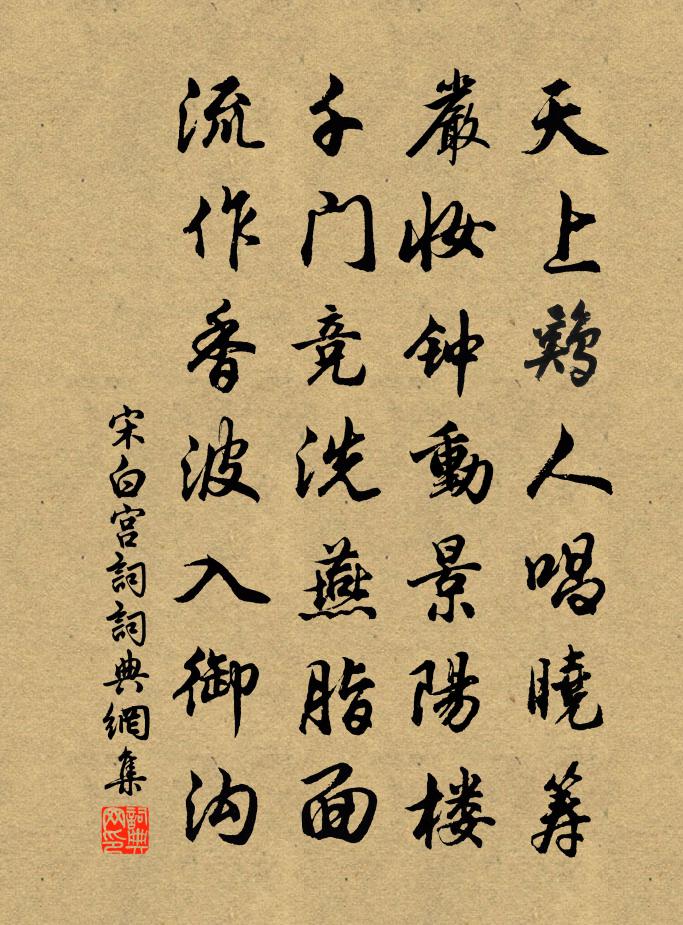 天上鷄人唱曉筹
嚴妆钟動景陽楼
千门竞洗燕脂面
流作香波入御沟
宋白宫詞詞典網集
詞典网印